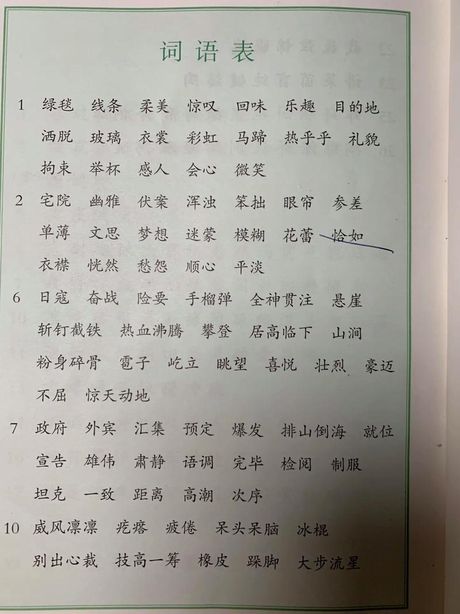 词语表
1 绿毯 线条 柔美 惊叹 回味 乐趣 目的地
洒脱 玻璃 衣裳 彩虹 马蹄 热乎乎 礼貌
拘束 举杯 感人 会心 微笑
2 宅院 幽雅 伏案 浑浊 笨拙 眼帘 参差
单薄 文思 梦想 迷蒙 模糊 花蕾 恰如
衣襟 恍然 愁怨 顺心 平淡
6 日寇 奋战 险要 手榴弹 全神贯注 悬崖
斩钉截铁 热血沸腾 攀登 居高临下 山涧
粉身碎骨 雹子 屹立 眺望 喜悦 壮烈 豪迈
不屈 惊天动地
7 政府 外宾 汇集 预定 爆发 排山倒海 就位
宣告 雄伟 肃静 语调 完毕 检阅 制服
坦克 一致 距离 高潮 次序
10 威风凛凛 疙瘩 疲倦 呆头呆脑 冰棍
别出心裁 技高一筹 橡皮 跺脚 大步流星